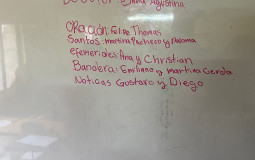 Agustina
Oración: Felipe Thomas
Santos: martina Pacheco y Paloma
efemerides: Ana y Christian
Bandera: Emiliano y martina Cerda
Noticas Gustavo y Diego